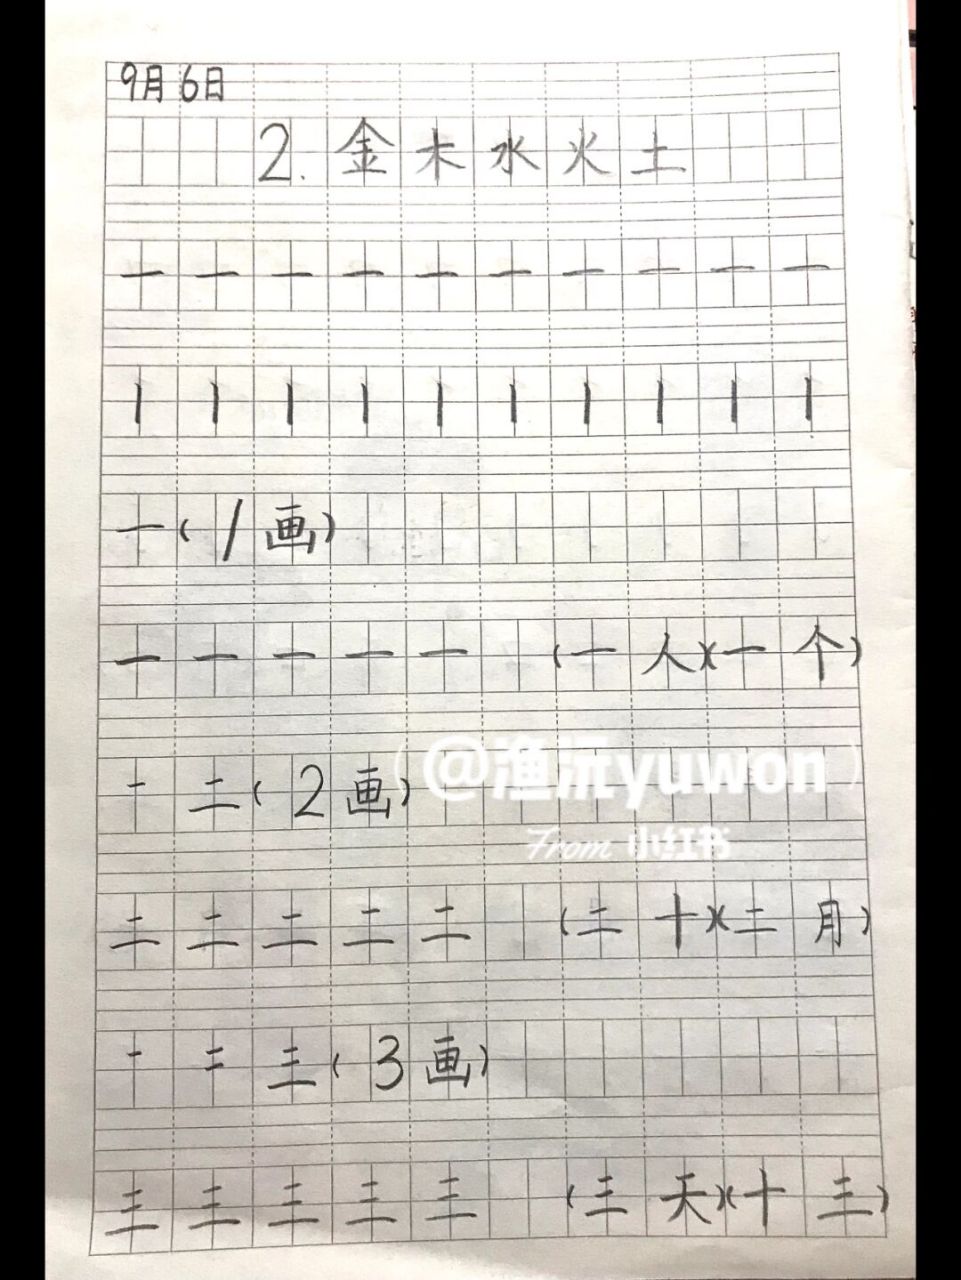 9月6日
2. 金木水火土
一 一 一 一 一 一 一 一 一 一
丨 丨 丨 丨 丨 丨 丨 丨 丨 丨
一(1画)
一 一 一 一 一 (一人)(一个)
一 二(2画)
@渔沅yuwon
From 小红书
二 二 二 二 二 (二十)(二月)
一 二 三(3画)
三 三 三 三 三 (三天)(十三)